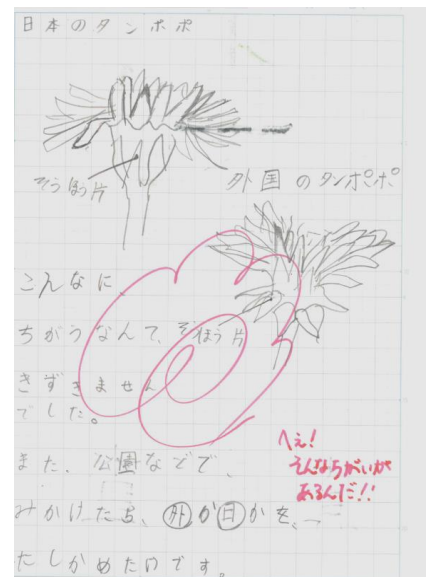 日本のタンポポ
そうほう片
外国のタンポポ
こんなに、
ちがうなんて、
そほう片
きずきません
でした。
また、公園などで、
みかけたら、外か日かを、
たしかめたいです。
へえ!
そんなちがいが
あるんだ!!